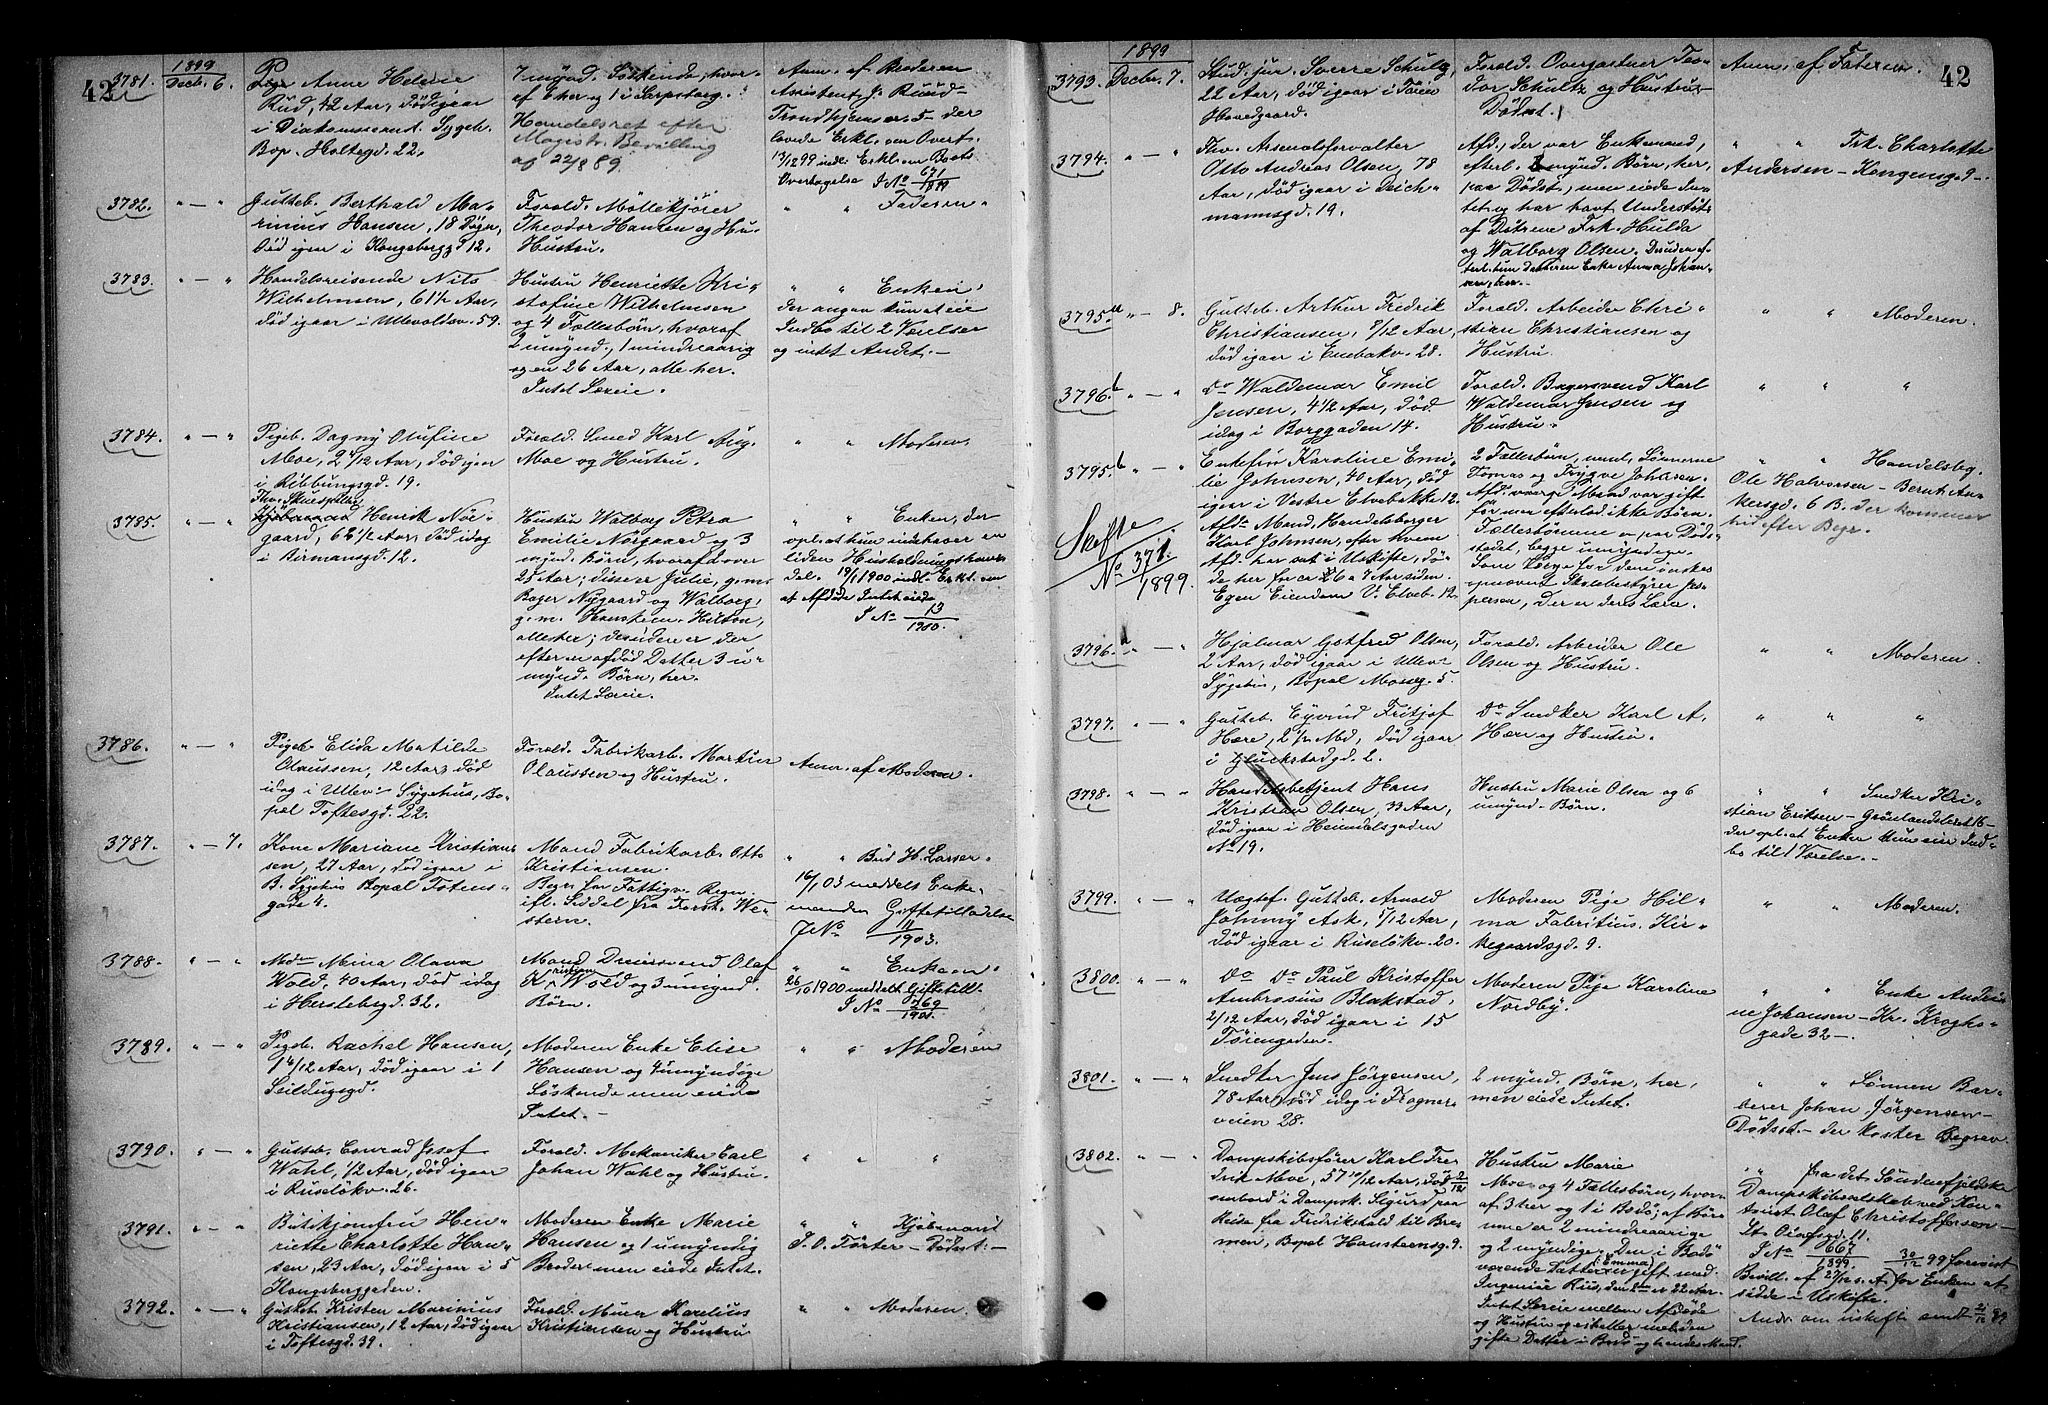 42
1899
3781. Decbr. 6. Pige Anne Helene
Rud, 42 Aar, død igaar
i Diakonisseanst. Sygeh.
Bop. Holtegd. 22.
7 mynd. Søskende, hvor-
af 6 her og 1 i Sarpsborg.
Handelsret efter
Magistr. Bevilling
af 22/8 89.
Anm. af Broderen
Assistent J. Ruud
Trondhjemsv. 5 der
lovede Erkl. om Overt.
13/12 99 indk. Erkl. om Boets
Overtagelse J No 671/1899
3782. " — " Gutteb. Berthald Ma-
rinius Hansen, 18 Døgn,
død igaar i Kongsbergg. 12.
Foræld. Møllekjører
Theodor Hansen og Hu-
Hustru.
" " Faderen
3783. " — " Handelsreisende Nils
Wilhelmsen, 61 1/2 Aar,
død igaar i Ullevoldsv. 59.
Hustru Henriette Kri-
stofine Wilhelmsen
og 4 Fællesbørn, hvoraf
2 umynd., 1 mindreaarig
og en 26 Aar, alle her.
Intet Særeie.
" " Enken,
der angav kun at eie
Indbo til 2 Værelser
og intet Andet.
3784. " — " Pigeb. Dagny Olufine
Moe, 2 4/12 Aar, død igaar
i Ribbungsgd. 19.
Foræld. Smed Karl Aug.
Moe og Hustru.
" " Moderen
3785. " — " Fhv. Skuespiller
Henrik Nør-
gaard, 66 1/2 Aar, død idag
i Birmansgd. 12.
Hustru Walborg Petra
Emilie Nørgaard og 3
mynd. Børn, hvoraf 2 over
25 Aar; disse er Julie, g. m.
Bager Nygaard og Walborg,
g. m. Hilton,
allester; desuden er der
efter en afdød Datter 3 u-
mynd. Børn, her.
Intet Særeie.
" " Enken, der
opl. at kun indhaver en
liden Husholdningshan-
del. 19/1 1900 indk. Erkl. om
at Afdøde Intet eiede
J No 13/1900.
3786. " — " Pigeb. Elida Matilde
Olaussen, 12 Aar, død
idag i Ullev. Sygehus, Bo-
pæl Toftesgd. 22.
Foræld. Fabrikarb. Martin
Olaussen og Hustru.
Anm. af Moderen.
3787. " — 7. Kone Mariane Kristian-
sen, 27 Aar, død igaar i
B. Sygehus Bopæl Totens-
gade 4.
Mand Fabrikarb. Otto
Kristiansen.
Begr. for Fattigv. Regn.
ifl. Seddel fra Forst. We-
stern.
" " Bud H. Larsen
16/1 03 meddelt Enke-
manden Giftetilladelse
J No 11/1903.
3788. " — " Mdm Mina Olava
Wold, 40 Aar, død idag
i Herslebsgd. 32.
Mand Dreiersvend Olaf
Kristian Wold og 3 umynd.
Børn.
" " Enkem.
26/10 1900 meddelt Giftetill.
J No 269/1900.
3789. " — " Pigeb. Rachel Hansen,
1 4/12 Aar, død igaar i 1
Seildugsgd.
Moderen Enke Elise
Hansen og 4 umyndige
Søskende men eiede
Intet.
" " Moderen
3790. " — " Gutteb. Conrad Josef
Wahl, 1/2 Aar, død igaar
i Ruseløkv. 26.
Foræld. Mekaniker Carl
Johan Wahl og Hustru.
" " "
3791. " — " Butikjomfru Hen-
riette Charlotte Han-
sen, 23 Aar, død igaar i 5
Kongsberggaden.
Moderen Enke Marie
Hansen og 1 umyndig
Broder men eiede Intet.
" " Kjøbmand
P. O. Førter — Dødst.
3792. " — " Gutteb. Kristen Marinius
Kristiansen, 12 Aar, død igaar
i Toftesgd. 39.
Foræld. Murer Karelius
Kristiansen og Hustru
" " Moderen.
42
1899
3793. Decbr. 7. Stud. jur. Sverre Schultz,
22 Aar, død igaar i Tøien
Hovedgaard.
Foræld. Overgartner Teo-
dor Schultz og Hustru
Dødst.
Anm. af Faderen.
3794. " — " Fhv. Arsenalforvalter
Otto Andreas Olsen, 78
Aar, død igaar i Deich-
mannsgd. 19.
Afd., der var Enkemand,
efterl. mynd. Børn, her,
paa Dødst., men eiede In-
tet og har havt Understøt.
af Døtrene Frk. Hulda
og Walborg Olsen. Desuden ef-
terl. han Datteren Enke Anna Johan-
sen, her.
" " Frk. Charlotte
Andersen — Kongensgd.
3795a " — 8. Gutteb. Arthur Fredrik
Christiansen, 9/12 Aar,
død igaar i Enebakv. 28.
Foræld. Arbeider Chri-
stian Christiansen og
Hustru.
" " Moderen.
3796b " — " Do Waldemar Emil
Jensen, 4 1/2 Aar, død
idag i Borggaden 14.
Foræld. Bagersvend Karl
Waldemar Jensen og
Hustru.
" " "
3795b " — " Enkefru Karoline Emi-
lie Johnsen, 40 Aar, død
igaar i Vestre Elvebakke 12.
Afdm Mand, Handelsborger
Karl Johnsen, efter hvem
Afd. har sat i Uskifte, dø-
de her for ca 6 a 7 Aar siden.
Egen Eiendom V. Elveb. 12.
Skifte
No 371/1899.
2 Fællesbørn, umd., Sønnerne
Tomas og Trygve Johnsen.
Afd. var gift
før men efterlod ikke Børn.
Fællesbørnene er paa Død-
stedet, begge umyndige.
Som Værge for dem ønskes
opnævnt Skolebestyrer Jes-
persen, der er deres Lærer.
" " Handelsbg.
Ole Halvorsen — Bernt An-
kersgd. 6 B. der kommer
hid efter Begr.
3796a " — " Hjalmar Gotfred Olsen,
2 Aar, død igaar i Ullev.
Sygehus, Bopæl Mosseg. 5.
Foræld. Arbeider Ole
Olsen og Hustru.
" " Moderen.
3797. " — " Gutteb. Eyvind Fritjof
Hære, 2 1/2 Md, død igaar
i Glückstadgd. 2.
Do Snedker Karl A.
Hære og Hustru
" " "
3798. " — " Handelsbetjent Hans
Kristian Olsen, 33 Aar,
død igaar i Heimdalsgaden
No 19.
Hustru Marie Olsen og 6
umynd. Børn.
" " Snedker Kri-
stian Eriksen — Grønlandsleret 16
der opl. at Enken kun eier Ind-
bo til 1 Værelse.
3799. " — " Uægtef. Gutteb. Arnold
Johnny Ask, 5/12 Aar,
død igaar i Ruseløkv. 20.
Moderen Pige Hil-
ma Fabritius. Kir-
kegaardsgd. 9.
" " Moderen.
3800. " — " Do Do Paul Kristoffer
Ambrosius Blakstad,
2/12 Aar, død igaar i 15
Tøiengaden.
Moderen Pige Karoline
Nordby.
" " Enke Andrin-
ne Johansen — Kr. Kroghs-
gade 32 —.
3801. " — " Snedker Jens Jørgensen,
78 Aar, død idag i Frogner-
veien 28.
2 mynd. Børn, her,
men eiede Intet.
" " Sønnen Bar-
berer Johan Jørgensen
Dødsst. — der koster Begrav.
3802. " — " Dampskibsfører Karl Fre-
drik Moe, 57 10/12 Aar, død 2/12
ombord i Dampsk. Sigurd paa
Reise fra Fredrikshald til Bre-
men, Bopæl Hansteensg. 9.
Hustru Marie
Moe og 4 Fællesbørn, hvor-
af 3 her og 1 i Bodø; af Bør-
nene er 2 mindreaarige
og 2 myndige. Den i Bodø
værende Datter (Emma) er gift med
Ingeniør Riis, den er 22 Aar.
Intet Særeie mellem Afdøde
og Hustru og ei heller mel. den
gifte Datter i Bodø og hendes Mand.
" " fra det Søndenfjeldske
Dampskibsselskab ved Kon-
torist Olaf Christoffersen
St. Olafsgd. 11.
J No 667/1899. 30/12 99 forevist
Bevill. af 27/12 s. A. for Enken at
sidde i Uskifte.
Andr. om uskift. sendt 21/12 99